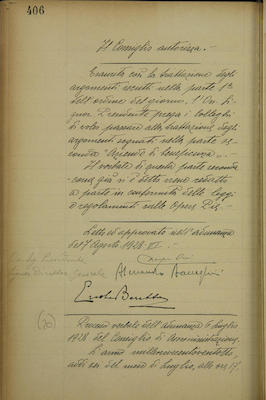 406
Il Consiglio autorizza. -
Esaurita così la trattazione degli
argomenti iscritti nella parte 1ª
dell'ordine del giorno, l'On. Si-
gnor Presidente prega i colleghi
di voler passare alla trattazione degli
argomenti segnati nella parte se-
conda "Azienda di beneficenza". -
Il verbale di questa parte
come già si è detto viene esteso
a parte in conformità delle leggi
e regolamenti sulle Opere Pie. -
Letto ed approvato nell'adunanza
del 7 Agosto 1928 - VI. -
(70)
Processo verbale dell'adunanza 6 Luglio
1928 del Consiglio di Amministrazione.
L'anno millenovecentoventotto,
addì sei del mese di Luglio, alle ore 17.